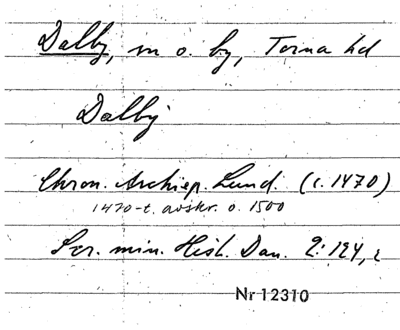 Dalby, m o. by, Torna hd
Dalbÿ
Chron. Archiep. Lund. (c. 1470)
1470-t. avskr. o. 1500
Scr. min. Hist. Dan. 2: 124,
Nr 12310